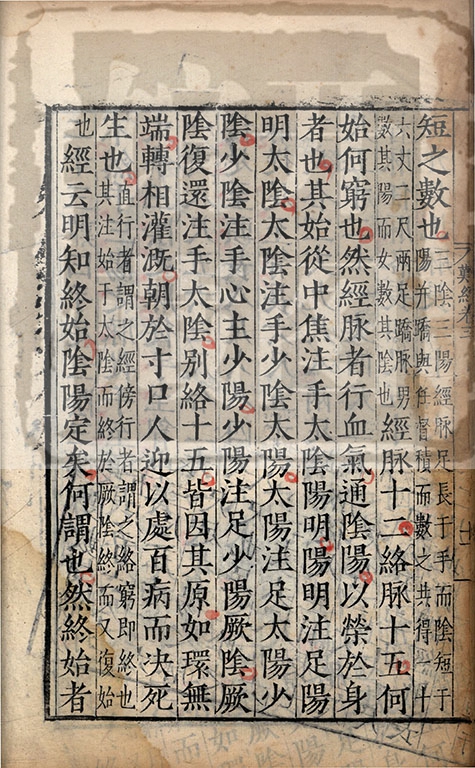 短之數也三陰三陽經脉足長于手而陰短于
陽并蹻與任督積而數之共得一十
六丈二尺兩足蹻脉男
數其陽而女數其陰也經脉十二絡脉十五何
始何窮也然經脉者行血氣通陰陽以榮於身
者也其始從中焦注手太陰陽明陽明注足陽
明太陰太陰注手少陰太陽太陽注足太陽少
陰少陰注手心主少陽少陽注足少陽厥陰厥
陰復還注手太陰別絡十五皆因其原如環無
端轉相灌溉朝於寸口人迎以處百病而決死
生也直行者謂之經傍行者謂之絡窮即終也
其注始于太陰而終於厥陰終而又復始
也經云明知終始陰陽定矣何謂也然終始者